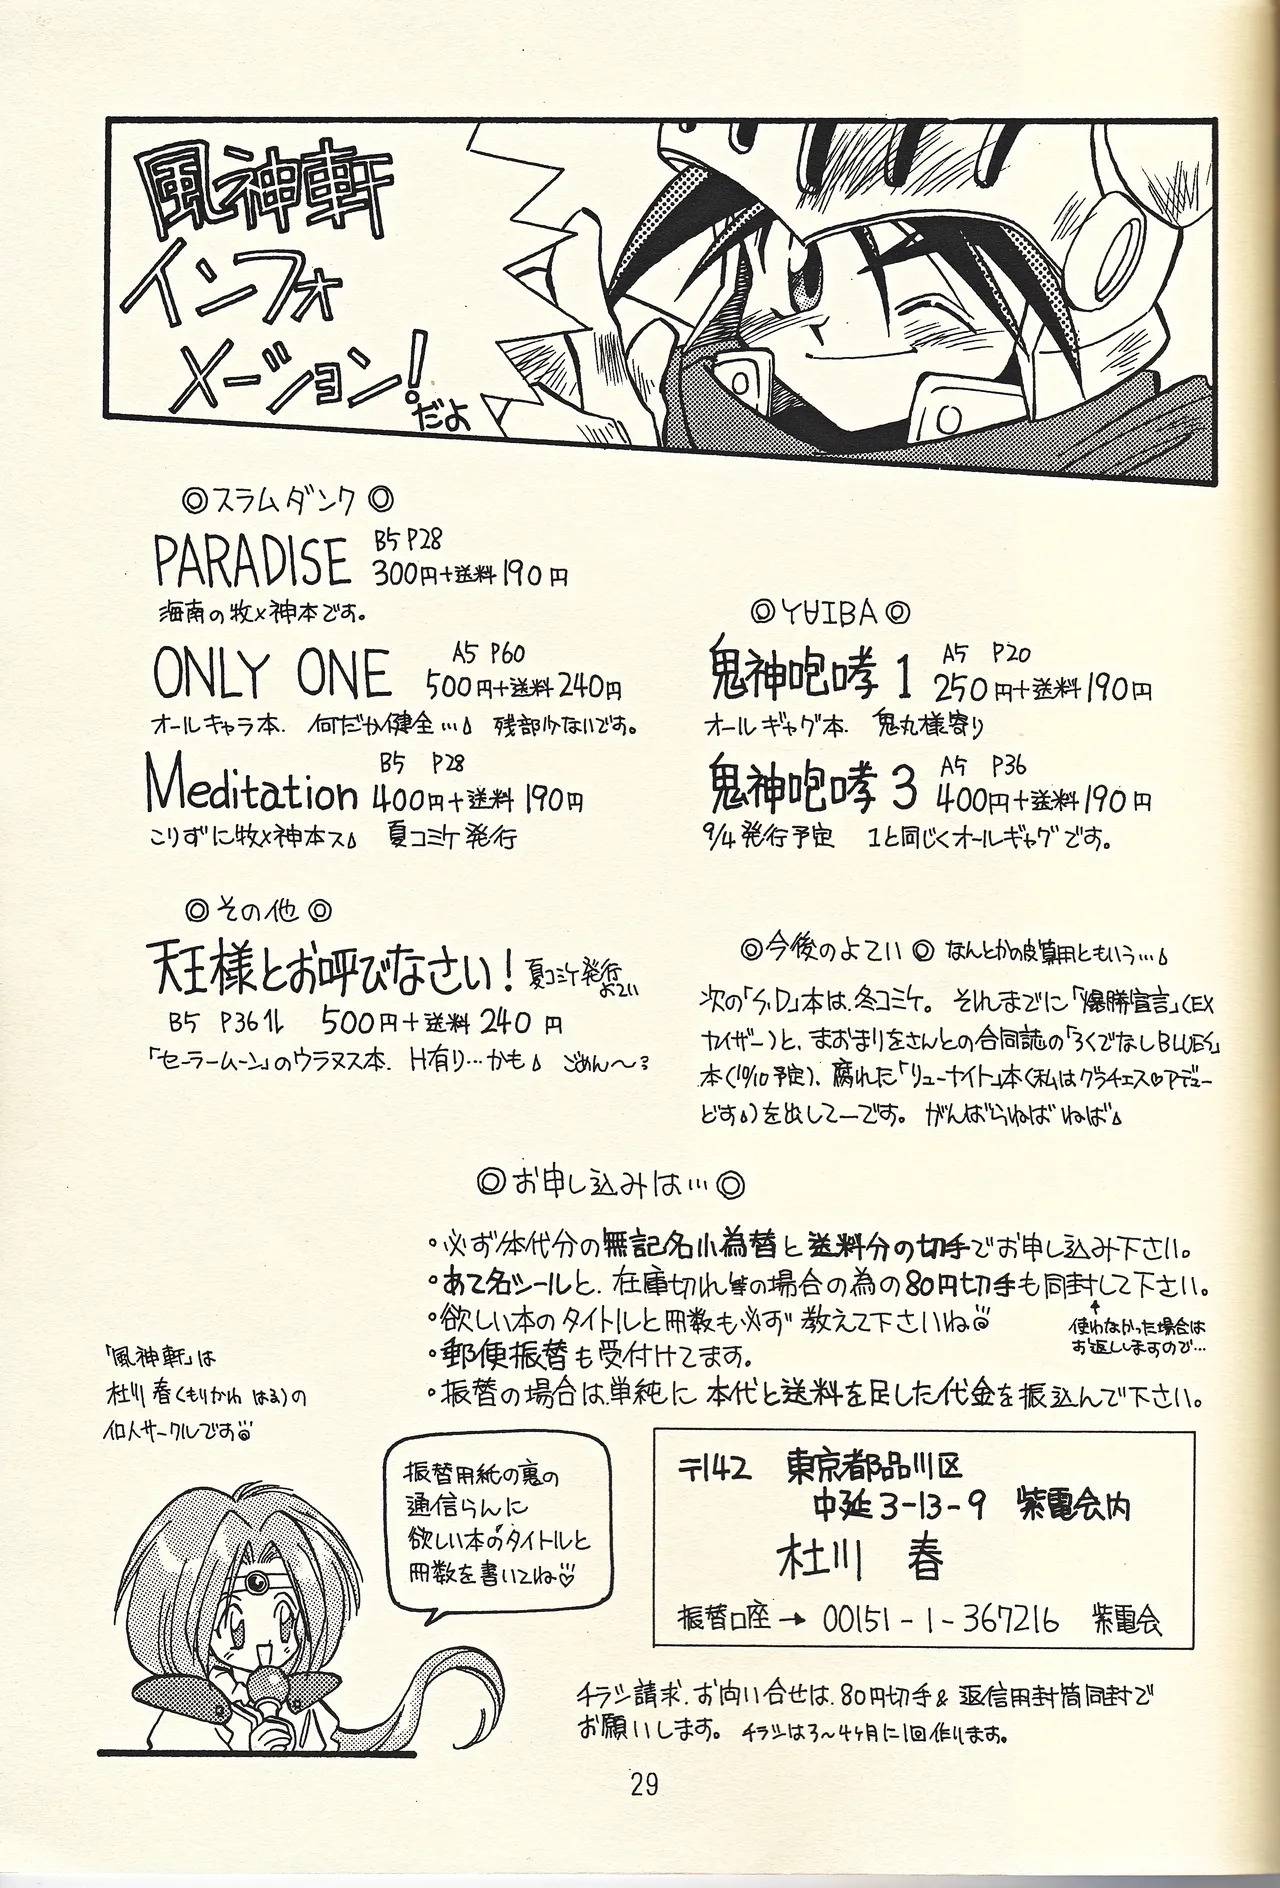 風神軒
インフォ
メーション!
だよ
◎スラムダンク◎
PARADISE B5 P28
300円+送料190円
海南の牧×神本です。
ONLY ONE A5 P60
500円+送料240円
オールキャラ本. 何だか健全… 残部少ないです。
Meditation B5 P28
400円+送料190円
こりずに牧×神本ス 夏コミケ発行
◎YAIBA◎
鬼神咆哮1 A5 P20
250円+送料190円
オールギャグ本. 鬼丸様寄り
鬼神咆哮3 A5 P36
400円+送料190円
9/4発行予定 1と同じくオールギャグです。
◎その他◎
天王様とお呼びなさい! 夏コミケ発行
よてい
B5 P36 500円+送料240円
「セーラームーン」のウラヌス本. H有り…かも ごめん〜
◎今後のよてい◎ なんとかの皮算用ともいう…
次の「S.D」本は.冬コミケ。 それまでに「爆勝宣言」(EX
カイザー)と、まおまりをさんとの合同誌の「ろくでなしBLUES」
本(10/10予定)、腐れた「リューナイト」本(私はグラチェス♡アデュー
どす)を出してーです。 がんばらねば ねば
◎お申し込みは…◎
・必ず本代分の無記名小為替と送料分の切手でお申し込み下さい。
・あて名シールと、在庫切れ等の場合の為の80円切手も同封して下さい。
・欲しい本のタイトルと冊数も必ず教えて下さいね
使わなかった場合は
お返ししますので…
・郵便振替も受付けてます。
・振替の場合は単純に本代と送料を足した代金を振込んで下さい。
「風神軒」は
杜川春(もりかわ はる)の
個人サークルです
振替用紙の裏の
通信らんに
欲しい本のタイトルと
冊数を書いてね♡
〒142 東京都品川区
中延3-13-9 紫電会内
杜川 春
振替口座→00151-1-367216 紫電会
チラシ請求、お問い合せは、80円切手&返信用封筒同封で
お願いします。 チラシは3〜4ヶ月に1回作ります。
29